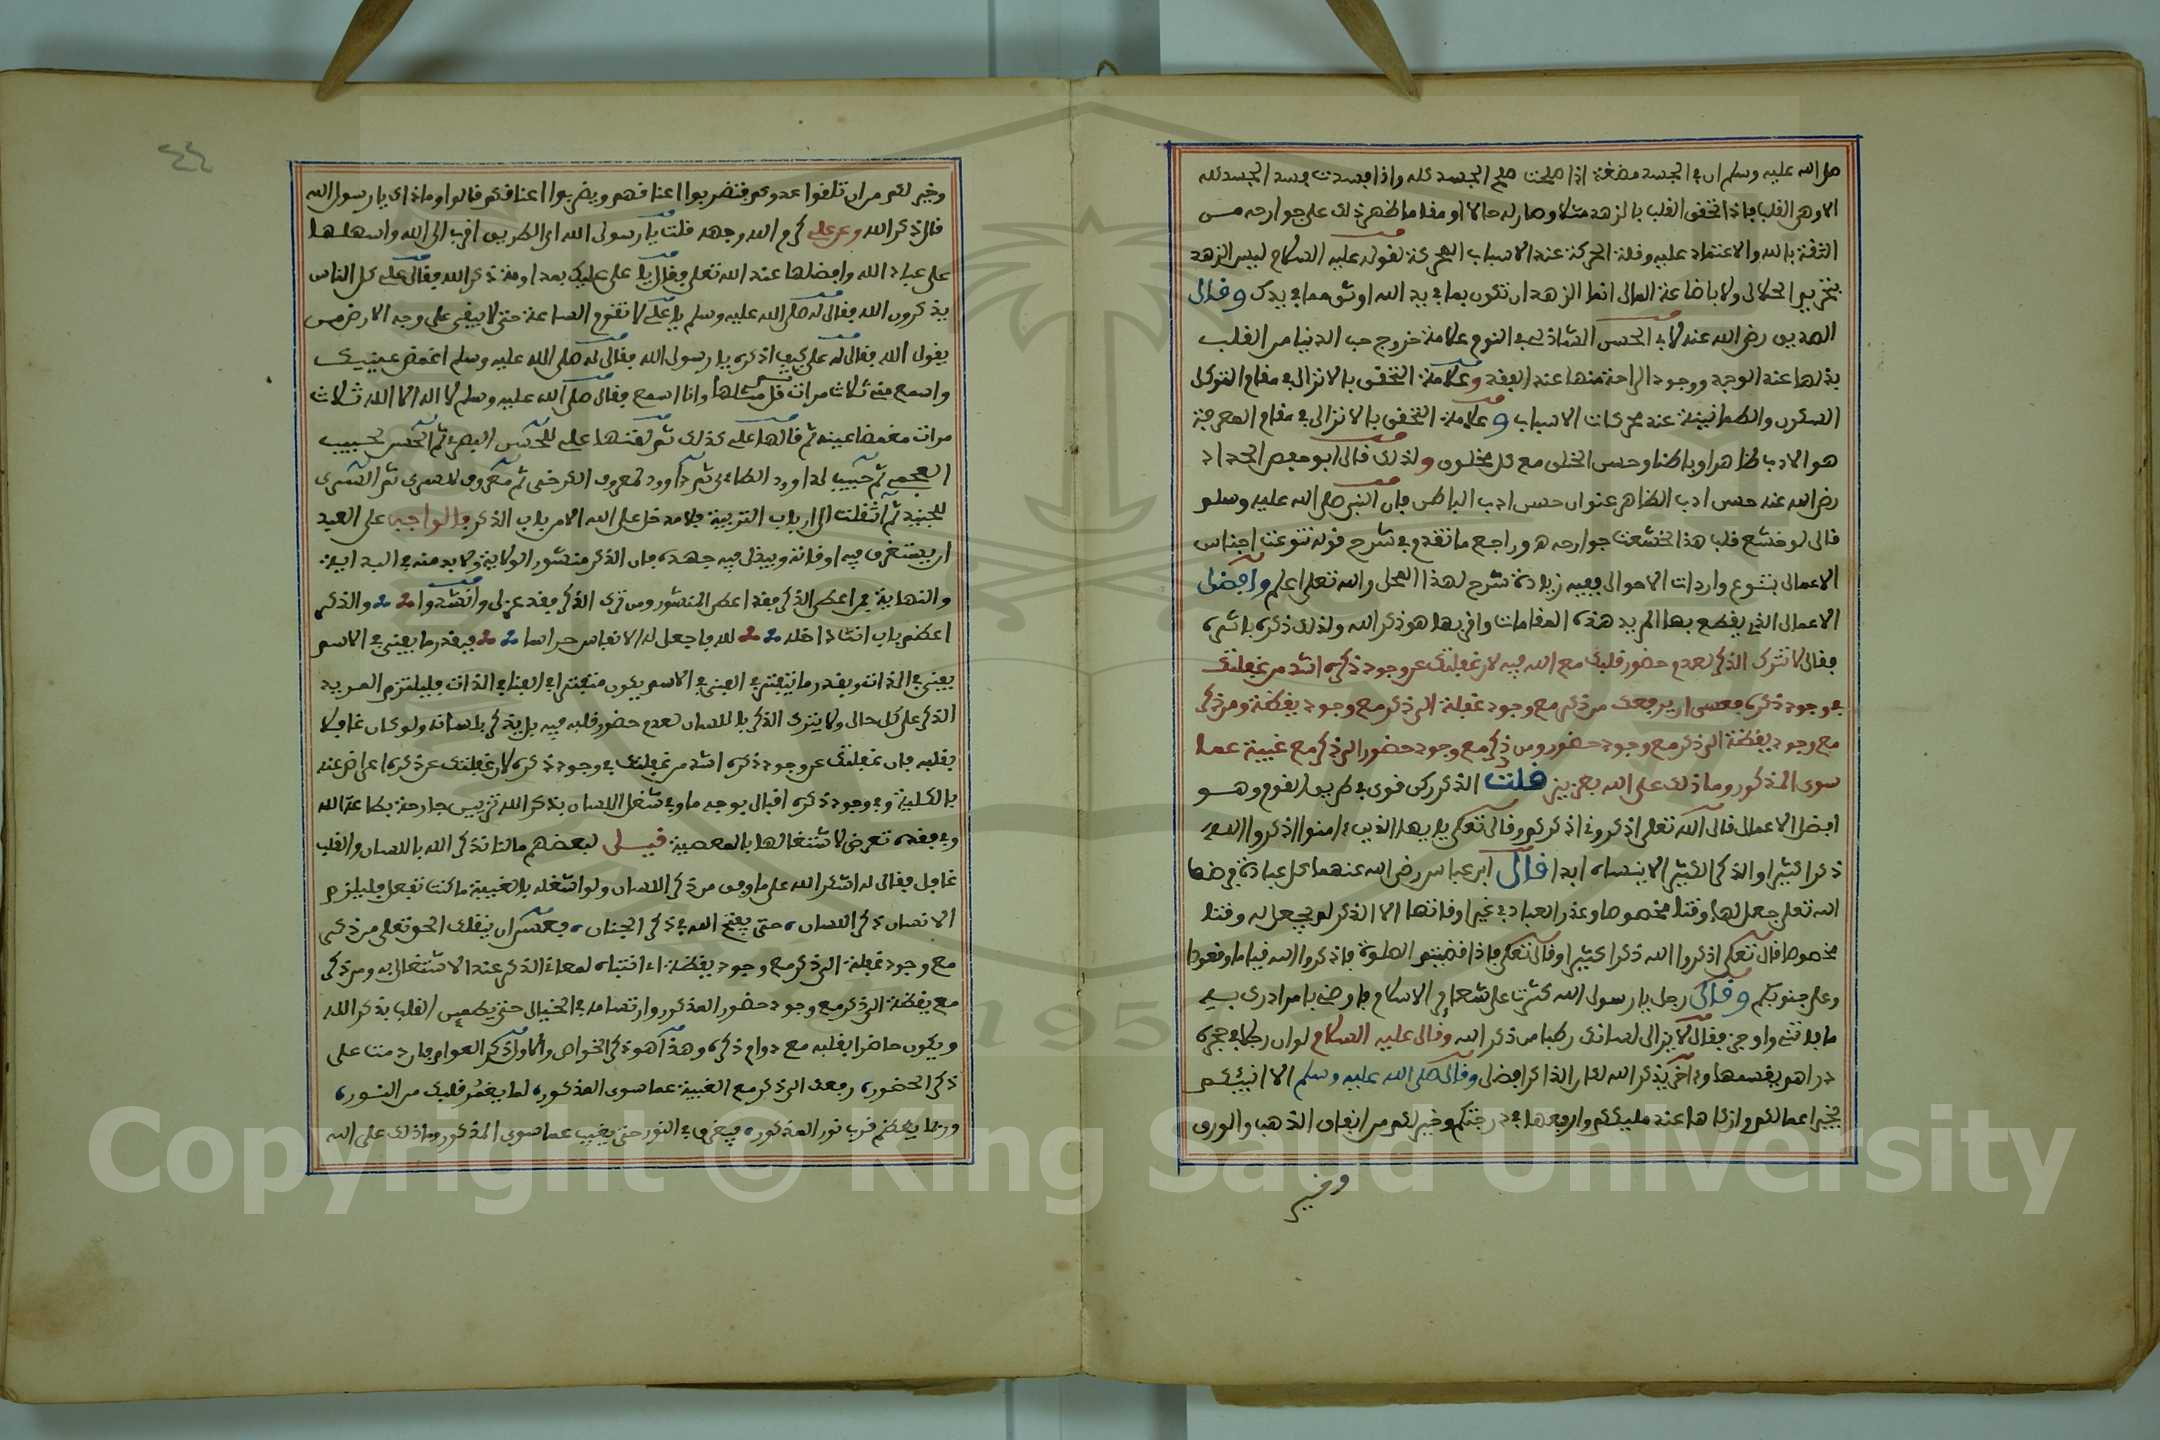 صلى الله عليه وسلم ان في الجسد مضغة اذا صلحت صلح الجسد كله واذا فسدت فسد الجسد كله
الا وهي القلب فاذا تحقق القلب بالزهد مثلا وصار له حالا او مقاما ظهر ذلك على جوارحه من
الثقة بالله والاعتماد عليه وقلة الحركة عند الاسباب المحركة لقوله عليه السلام ليس الزهد
بتحريم الحلال ولا باضاعة المال انما الزهد ان تكون بما في يد الله اوثق مما في يدك وقال
الصديق رضي الله عنه لابي الحسن الشاذلي في النوم علامة خروج حب الدنيا من القلب
بذلها عند الوجد ووجود الراحة منها عند الفقد وعلامة التحقق بالانزال في مقام التوكل
السكون والطمانينة عند محركات الاسباب وعلامة التحقق بالانزال في مقام المعرفة
هو الادب ظاهرا وباطنا وحسن الخلق مع كل مخلوق ولذلك قال ابو حفص الحداد
رضي الله عنه حسن ادب الظاهر عنوان حسن ادب الباطن فان النبي صلى الله عليه وسلم
قال لو خشع قلب هذا لخشعت جوارحه وراجع ما تقدم في شرح قوله تنوعت اجناس
الاعمال بتنوع واردات الاحوال ففيه زيادة شرح لهذا المحل والله تعلى اعلم وافضل
الاعمال التي يقطع بها المريد هذه المقامات واقربها هو ذكر الله ولذلك ذكره باثره
فقال لا تترك الذكر لعدم حضور قلبك مع الله فيه لان غفلتك عن وجود ذكره اشد من غفلتك
في وجود ذكره فعسى ان يرفعك من ذكر مع وجود غفلة الى ذكر مع وجود يقظة ومن ذكر
مع وجود يقظة الى ذكر مع وجود حضور ومن ذكر مع وجود حضور الى ذكر مع غيبة عما
سوى المذكور وما ذلك على الله بعزيز قلت الذكر ركن قوي في طريق القوم وهو
افضل الاعمال قال الله تعلى اذكروني اذكركم وقال تعلى يا يها الذين ءامنوا اذكروا الله
ذكرا كثيرا والذكر الكثير الا ينساه ابدا قال ابن عباس رضي الله عنهما كل عبادة فرضها
الله تعلى جعل لها وقتا مخصوصا وعذر العباد في غير اوقاتها الا الذكر لم يجعل له وقتا
مخصوصا قال تعلى اذكروا الله ذكرا كثيرا وقال تعلى فاذا قضيتم الصلوة فاذكروا الله قياما وقعودا
وعلى جنوبكم وقال رجل يا رسول الله كثرت علي شعاير الاسلام فاوصني بامر ادرك به
ما فاتني واوجز فقال لا يزال لسانك رطبا من ذكر الله وقال عليه السلام لو ان رجلا في حجره
دراهم يقسمها وءاخر يذكر الله لكان الذاكر افضل وقال صلى الله عليه وسلم الا انبئكم
بخير اعمالكم وازكاها عند مليككم وارفعها في درجتكم وخير لكم من انفاق الذهب والورق
وخير
٤٤
وخير لكم من ان تلقوا عدوكم فتضربوا اعناقهم ويضربوا اعناقكم قالوا وما ذاك يا رسول الله
قال ذكر الله وعن علي كرم الله وجهه قلت يا رسول الله اي الطريق اقرب الى الله واسهلها
على عباد الله وافضلها عند الله تعلى فقال يا علي عليك بمداومة ذكر الله فقال علي كل الناس
يذكرون الله فقال له صلى الله عليه وسلم يا علي لا تقوم الساعة حتى لا يبقى على وجه الارض من
يقول الله فقال له علي كيف اذكره يا رسول الله فقال له صلى الله عليه وسلم اغمض عينيك
واسمع مني ثلاث مرات ثم قل مثلها وانا اسمع فقال صلى الله عليه وسلم لا اله الا الله ثلاث
مرات مغمضا عينيه ثم قالها علي كذلك ثم لقنها علي للحسن البصري ثم الحسن لحبيب
العجمي ثم حبيب لداوود الطائي ثم داوود لمعروف الكرخي ثم معروف للسري ثم السري
للجنيد ثم انتقلت الى ارباب التربية فلا مدخل على الله الا من باب الذكر فالواجب على العبد
ان يستغرق فيه اوقاته ويبذل فيه جهده فان الذكر منشور الولاية ولا بد منه في البداية
والنهاية فمن اعطي الذكر فقد اعطي المنشور ومن ترك الذكر فقد عزل وانشدوا والذكر
اعظم باب انت داخله لله فاجعل له الانفاس حراسا فبقدر ما يفنى في الاسم
يفنى في الذات وبقدر ما يتفتر في الفنى في الاسم يكون متفترا في الفنا في الذات فليلتزم المريد
الذكر على كل حال ولا يترك الذكر باللسان لعدم حضور قلبه فيه بل يذكر بلسانه ولو كان غافلا
بقلبه فان غفلتك عن وجود ذكره اشد من غفلتك في وجود ذكره لان غفلتك عن ذكره اعراض عنه
بالكلية وفي وجود ذكره اقبال بوجه ما وفي شغل اللسان بذكر الله تزيين جارحة بطاعة الله
وفي فقده تعرض لاشتغالها بالمعصية قيل لبعضهم ما لنا نذكر الله باللسان والقلب
غافل فقال له اشكر الله على ما وفق من ذكر اللسان ولو اشغله بالغيبة ما كنت تفعل فليلزم
الانسان ذكر اللسان حتى يفتح الله في ذكر الجنان فعسى ان ينقلك الحق تعلى من ذكر
مع وجود غفلة الى ذكر مع وجود يقظة اي انتباه لمعاني الذكر عند الاشتغال به ومن ذكر
مع يقظة الى ذكر مع وجود حضور المذكور وارتسامه في الخيال حتى يطمئن القلب بذكر الله
ويكون حاضرا بقلبه مع دوام ذكره وهذا هو ذكر الخواص والاول ذكر العوام فان دمت على
ذكر الحضور رفعك الى ذكر مع الغيبة عما سوى المذكور لما يغمر قلبك من النور
وربما يعظم قرب نور المذكور فيغرق في النور حتى يغيب عما سوى المذكور وما ذلك على الله
Copyright © King Saud University
1957